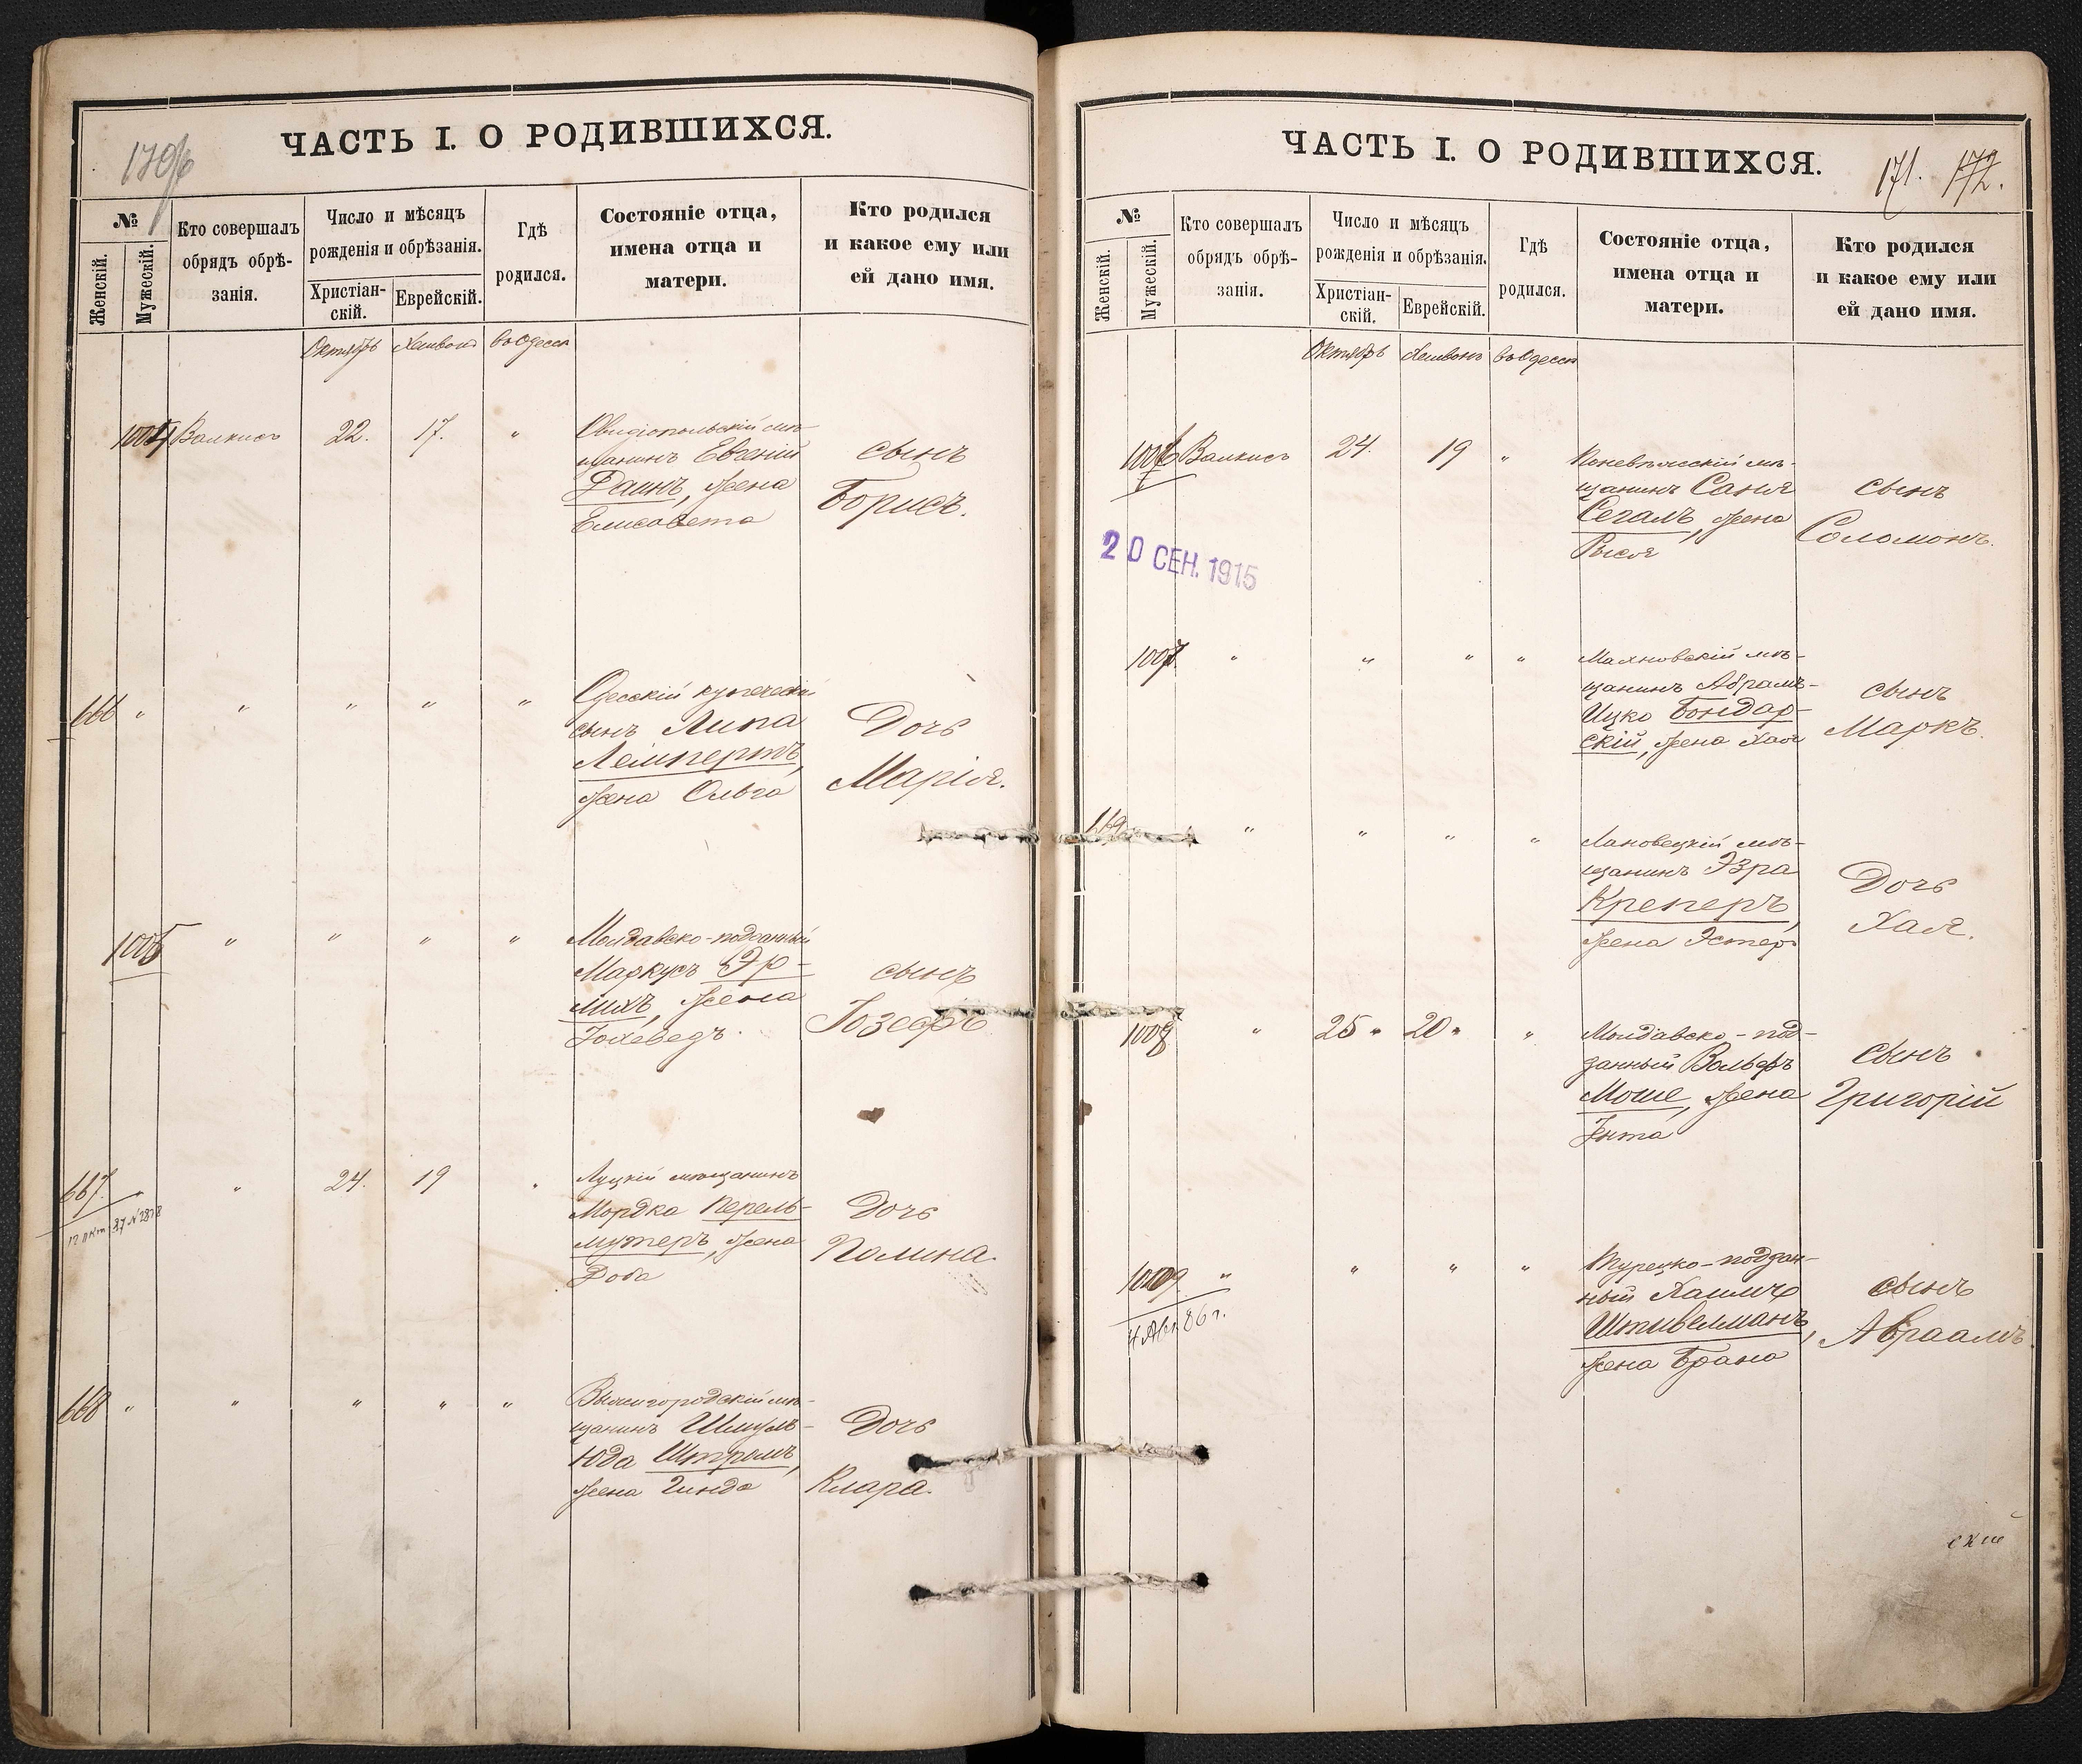 ЧАСТЬ I. О РОДИВШИХСЯ.
№
Женскій.
Мужескій.
Кто совершалъ
обрядъ обрѣ-
занія.
Число и мѣсяцъ
рожденія и обрѣзанія.
Христіан-
скій.
Еврейскій.
Гдѣ
родился.
Состояніе отца,
имена отца и
матери.
Кто родился
и какое ему или
ей дано имя.
Октябрь Хешвонъ въ Одессѣ
1004 Валкисъ 22. 17. "
Овидіопольскій мѣ-
щанинъ Евгеній
Раинъ, жена
Елисавета
сынъ
Борисъ.
666 " " " " "
Одесскій купеческій
сынъ Липа
Лемпертъ,
жена Ольга
Дочь
Марія.
1005 " " " "
Молдавско-подданный
Маркусъ Эр-
лихъ, жена
Іохеведъ.
сынъ
Іозефъ
667. " " 24. 19 "
12 окт. 87 №
Луцкій мѣщанинъ
Мордка Перель-
мутеръ, жена
Роба
Дочь
Полина.
668 " " " " "
Вышгородскій мѣ-
щанинъ Шмуль-
Юда Штромъ,
жена Гинда
Дочь
Клара.
ЧАСТЬ I. О РОДИВШИХСЯ.
171. 172.
№
Женскій.
Мужескій.
Кто совершалъ
обрядъ обрѣ-
занія.
Число и мѣсяцъ
рожденія и обрѣзанія.
Христіан-
скій.
Еврейскій.
Гдѣ
родился.
Состояніе отца,
имена отца и
матери.
Кто родился
и какое ему или
ей дано имя.
Октябрь Хешвонъ въ Одессѣ
1006 Валкисъ 24. 19 "
Поневѣжскій мѣ-
щанинъ Саня
Сегалъ, жена
Рыся
сынъ
Соломонъ.
20 СЕН. 1915
1007. " " " "
Махновскій мѣ-
щанинъ Абрамъ-
Ицко Бондар-
скій, жена Хая
сынъ
Маркъ.
669 " " " "
Лановецкій мѣ-
щанинъ Эзра
Креперъ,
жена Эстеръ
Дочь
Хая.
1008 " 25 " 20 " "
Молдавско-под-
данный Вольфъ
Моше, жена
Ента
сынъ
Григорій
1009. " " " "
4 Авг. 86 г.
Турецко-поддан-
ный Хаимъ
Штивельманъ,
жена Брана
сынъ
Авраамъ